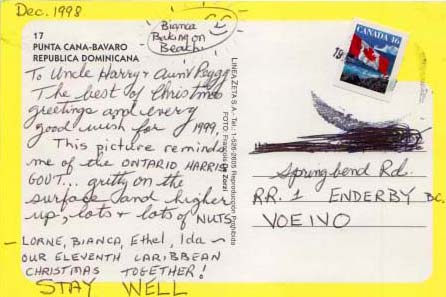 Dec. 1998
Bianca
Baking on
Beach
17
PUNTA CANA-BAVARO
REPUBLICA DOMINICANA
To Uncle Harry & Aunt Peggy
The best of Christmas
greetings and every
good wish for 1999,
This picture reminds
me of the ONTARIO HARRIS
GOVT... gritty on the
surface and higher
up, lots & lots of NUTS
- LORNE, BIANCA, Ethel, Ida ~
OUR ELEVENTH CARIBBEAN
CHRISTMAS TOGETHER!
STAY WELL
LINEA ZETA S.A. - Tel.: 1-526-2605 Reproduccion Prohibida
FOTO:
CANADA 46
19
Springbend Rd.
RR. 1 ENDERBY BC.
VOE1VO